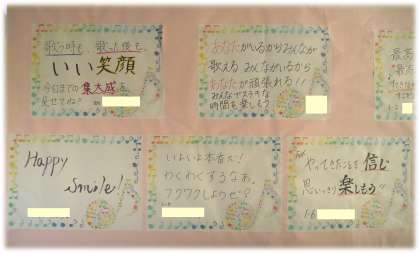 歌う時も 歌った後も
いい笑顔
今日までの集大成を
見せてね!!
あなたがいるからみんなが
歌える みんながいるから
あなたが頑張れる!!
みんなでステキな
時間を楽しもう
最高
最
1-2
Happy
Smile!
いよいよ本番だ!
わくわくするなぁ。
ワクワクしようぜ〜?
やってきたことを信じ
思いっきり楽しもう"
1-6